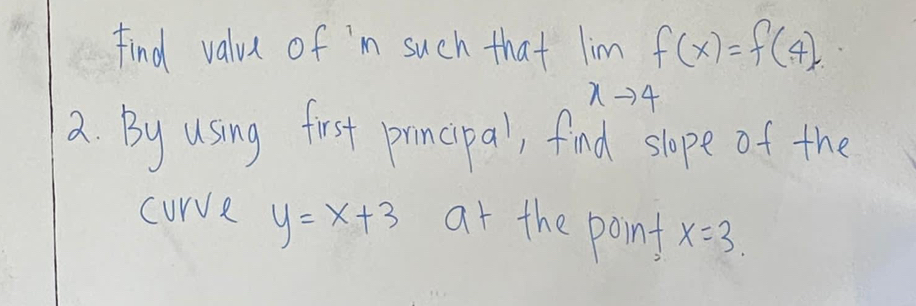 Find value of 'm such that lim f(x)=f(4).
x→4
2. By using first principal, find slope of the
curve y=x+3 at the point x=3.